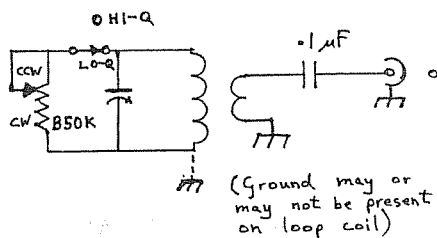 o HI-Q
.1 µF
CCW
LO-Q
CW
B50K
(Ground may or
may not be present
on loop coil)